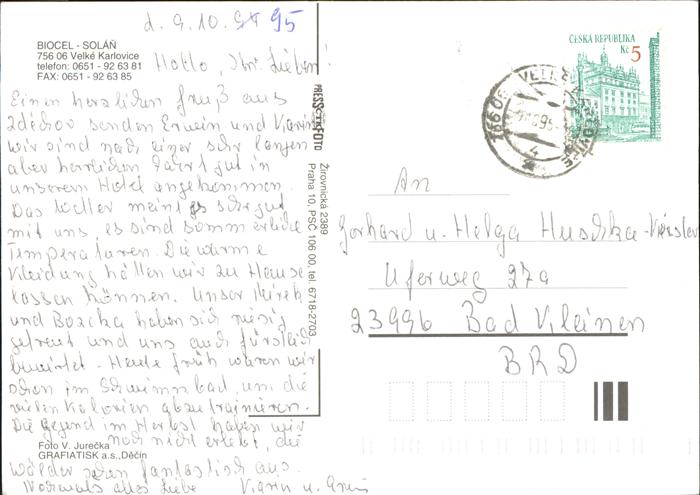 d. 9.10. 95
BIOCEL - SOLÁŇ
756 06 Velké Karlovice
telefon: 0651 - 92 63 81
FAX: 0651 - 92 63 85
Hallo, Ihr Lieben!
Einen herzlichen Gruß aus
senden Erwin und Karin
wir sind nach einer sehr langen
aber herrlichen Fahrt gut in
unserem Hotel angekommen.
Das Wetter meint es sehr gut
mit uns, es sind sommerliche
Temperaturen. Die warme
Kleidung hätten wir zu Hause
lassen können. Unser Mirek
und Bozcka haben sich riesig
gefreut und uns auch fürstlich
bewirtet. Heute früh waren wir
schon im Schwimmbad, um die
vielen Kalorien abzutrainieren.
Die Gegend im Herbst haben wir
noch nicht erlebt, die
Wälder sehen fantastisch aus.
Nochmals alles Liebe Karin u. Erwin
Foto V. Jurečka
GRAFIATISK a.s., Děčín
PRESS FOTO
Žirovnická 2389
Praha 10, PSČ 106 00, tel. 6718-2703
ČESKÁ REPUBLIKA
Kč 5
756 06
4
An
Gerhard u. Helga
Uferweg 27a
23996 Bad Kleinen
BRD